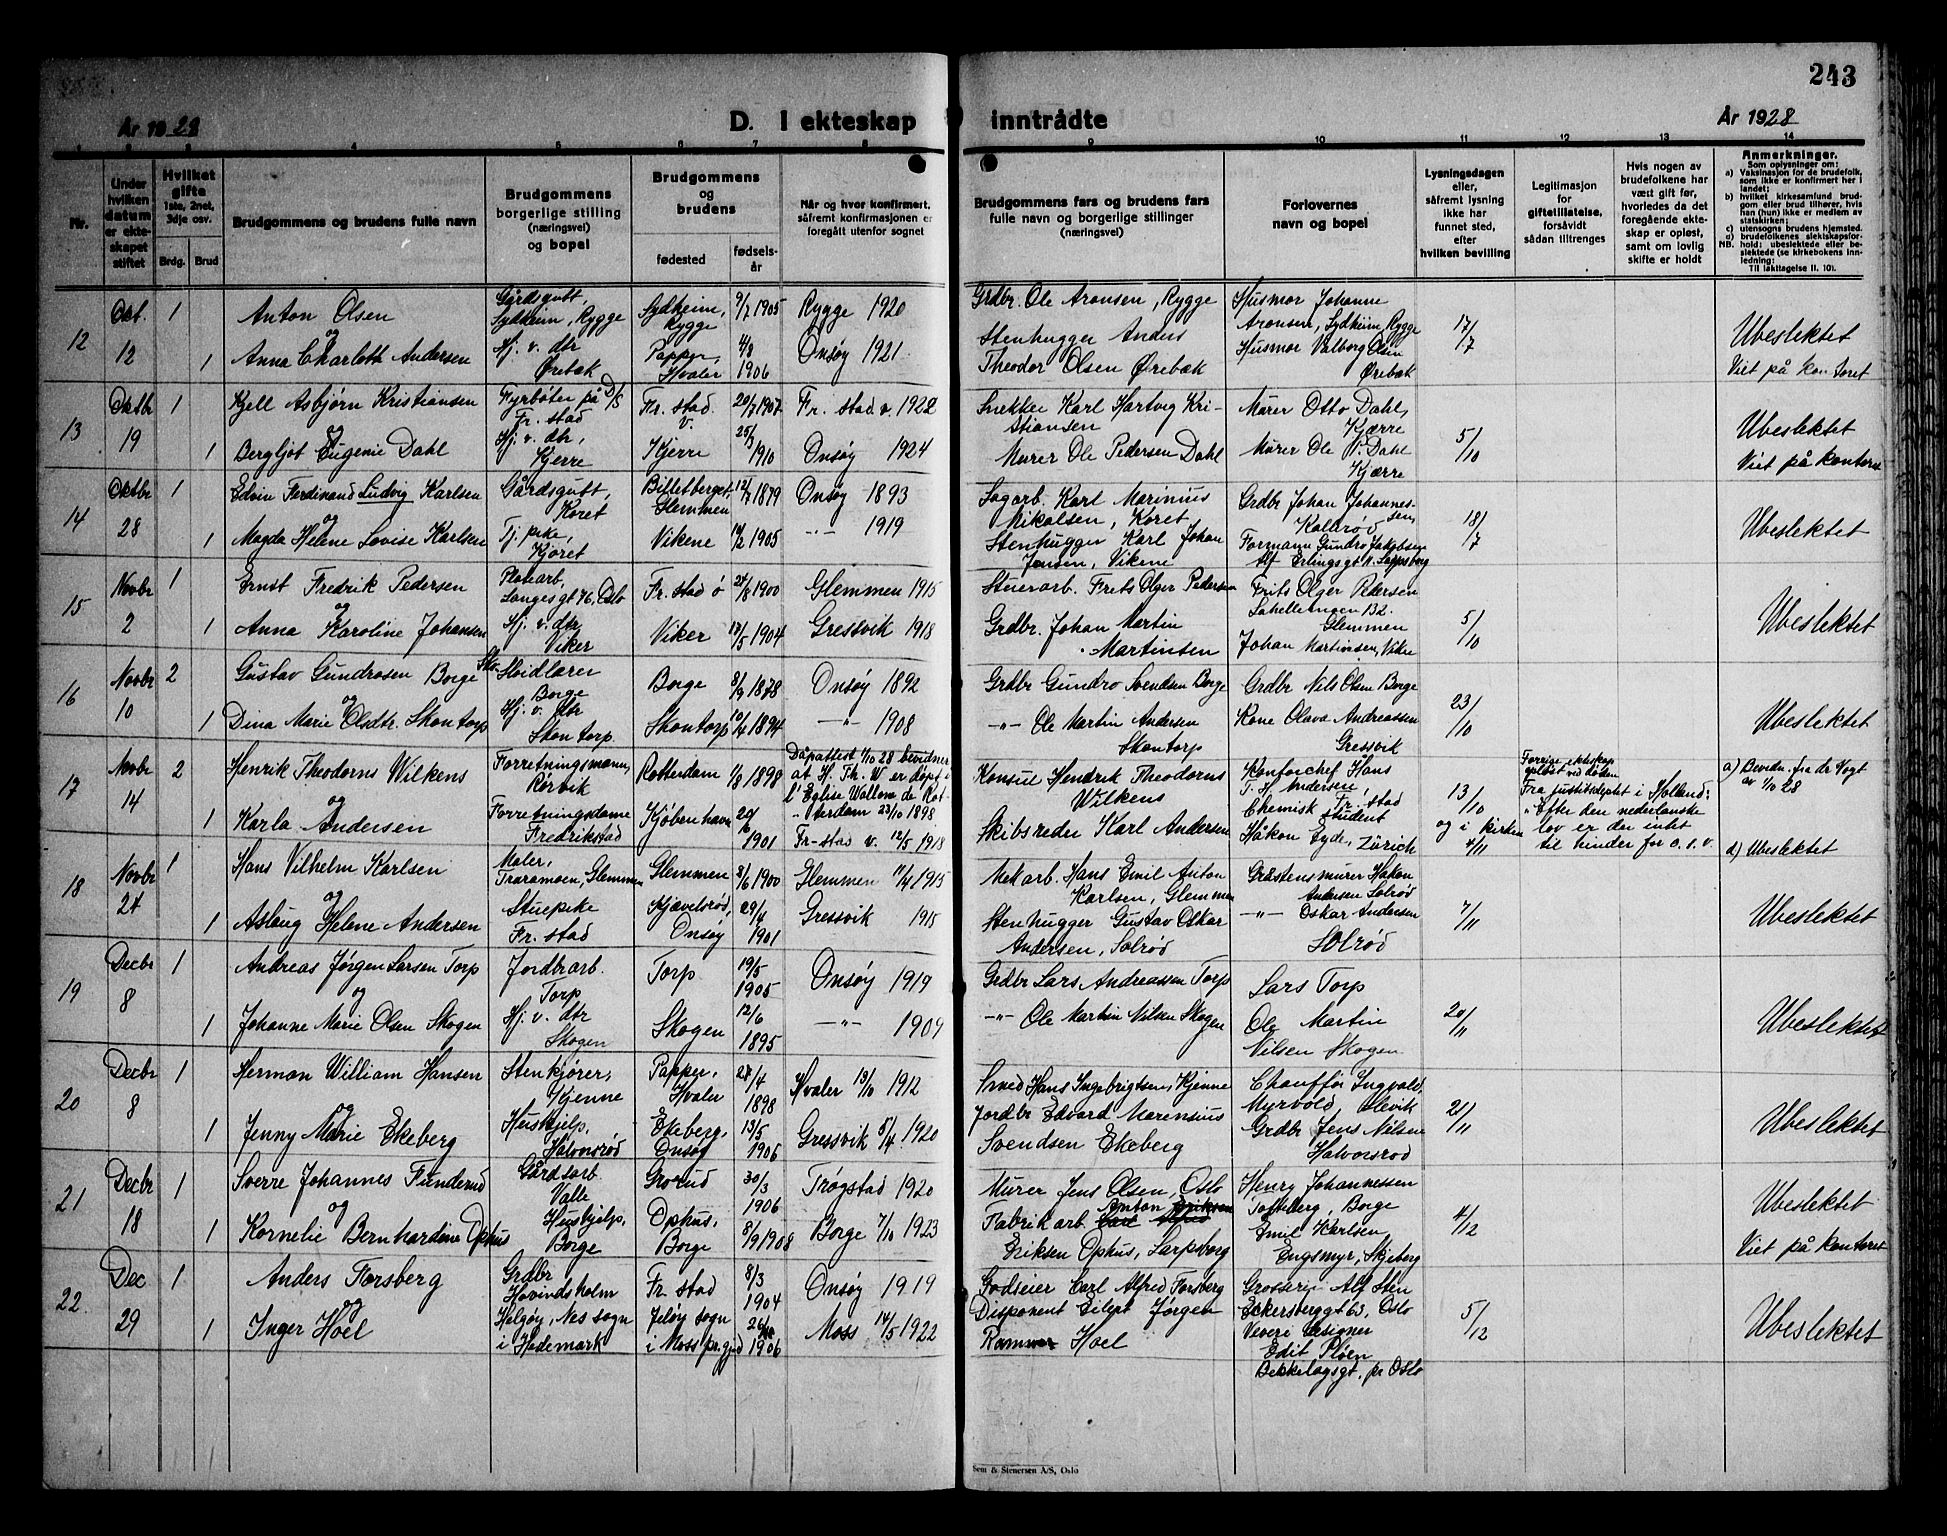 243
År 1928
D. I ekteskap inntrådte
År 1928
1 2 3 4 5 6 7 8 9 10 11 12 13 14
Nr.
Under hvilken datum er ekteskapet stiftet
Hvilket gifte 1ste, 2net, 3dje osv.
Brdg. Brud
Brudgommens og brudens fulle navn
Brudgommens borgerlige stilling (næringsvei) og bopel
Brudgommens og brudens
fødested
fødselsår
Når og hvor konfirmert, såfremt konfirmasjonen er foregått utenfor sognet
Brudgommens fars og brudens fars fulle navn og borgerlige stillinger (næringsvei)
Forlovernes navn og bopel
Lysningsdagen eller, såfremt lysning ikke har funnet sted, efter hvilken bevilling
Legitimasjon for giftetillatelse, forsåvidt sådan tiltrenges
Hvis nogen av brudefolkene har vært gift før, hvorledes da det foregående ekteskap er opløst, samt om lovlig skifte er holdt
Anmerkninger.
Som oplysninger om:
a) Vaksinasjon for de brudefolk, som ikke er konfirmert her i landet;
b) hvilket kirkesamfund brudgom eller brud tilhører, hvis han (hun) ikke er medlem av statskirken;
c) utensogns brudens hjemsted.
d) brudefolkenes slektskapsforhold: ubeslektede eller beslektede (se kirkebokens innledning:
NB.
Til iakttagelse II. 10).
12 Okt. 12 1 Anton Olsen Gårdsgutt, Sydheim, Rygge Sydheim, Rygge 9/7 1905 Rygge 1920 Grdbr. Ole Aronsen, Rygge Husmor Johanne Aronsen, Sydheim, Rygge 17/7 Ubeslektet
og
1 Anna Charlotte Andersen Hj. v. dtr Ørebæk Papper, Hvaler 4/8 1906 Onsøy 1921. Stenhugger Anders Theodor Olsen Ørebæk Husmor Valborg Olsen Ørebæk Viet på kontoret
13 Oktbr 19 1 Kjell Asbjørn Kristiansen Fyrbøter på D/S Fr. stad Fr. stad v. 20/7 1907 Fr. stad v. 1922 Snekker Karl Hartvig Kristiansen Murer Otto Dahl, Kjærre 5/10 Ubeslektet
og
1 Bergljot Eugenie Dahl Hj. v. dtr, Kjerre Kjerre 25/3 1910 Onsøy 1924 Murer Ole Pedersen Dahl Murer Ole P. Dahl Kjærre Viet på kontoret
14 Oktbr 28 1 Edvin Ferdinand Ludvig Karlsen Gårdsgutt, Köret Billetberget, Glemmen 12/7 1879 Onsøy 1893 Sagarb. Karl Marinius Nikolsen, Köret Grdbr Johan Johannessen, Kallerød 18/7 Ubeslektet
og
1 Magda Helene Lovise Karlsen Tj. pike, Kjöret Vikene 14/2 1905 -"- 1919 Stenhugger Karl Johan Jensen, Vikene Formann Gundro Jakobsen Alf Erlingsgt. 11. Sarpsborg
15 Novbr 2 1 Ernst Fredrik Pedersen Platearb, Langes gt 76, Oslo Fr. stad ø 24/8 1900 Glemmen 1915 Stuerarb. Frets Olger Pedersen Frits Olger Pedersen 132. Glemmen 5/10 Ubeslektet
og
1 Anna Karoline Johansen Hj. v. dtr Viker Viker 13/5 1904 Gressvik 1918 Grdbr. Johan Martin Martinsen Johan Martinsen, Vikne
16 Novbr 10 2 Gustav Gundrosen Borge Skredlærer Borge Borge 8/9 1878 Onsøy 1892 Grdbr Gundro Svendsen Borge Grdbr Nils Olsen Borge 23/10 Ubeslektet
og
1 Dina Marie Olsdtr. Skontorp Hj. v. dtr Skontorp. Skontorp 10/4 1894 -"- 1908 -"- Ole Martin Andersen Skontorp Kone Olava Andreassen Gressvik
17 Novbr 14 2 Henrik Theodorns Wilkens Forretningsmann, Rörvik Rotterdam 1/8 1898 Dåpattest 1/10 28 bevidner at H. Th. W er døpt i l'Eglise Wallonne de Rotterdam 23/10 1898 Konsul Hendrik Theodorns Wilkens Kontorchef Hans T. H. Andersen, Fr. stad 13/10 og i kirken 4/11 Forrige ekteskap opløst ved döden Fra justitsdeptet i Holland: "Efter den nederlanske lov er der intet til hinder for o.s.v. a) Bevidn. fra dr Vogt av 1/10 28
og
1 Karla Andersen Forretningsdame Fredrikstad Kjöbenhavn 20/6 1901 Fr-stad v. 12/5 1918 Skibsreder Karl Andersen Chemisk student Håkon Eyde, Zürich d) Ubeslektet
18 Novbr 24 1 Hans Vilhelm Karlsen Maler, Traramoen, Glemmen Glemmen 8/6 1900 Glemmen 11/4 1915 Mek arb. Hans Emil Anton Karlsen, Glemmen Gråstensmurer Håkon Andersen Solrød 7/11 Ubeslektet
og
1 Aslaug Helene Andersen Stuepike Fr. stad Kjævelsrød, Onsøy 29/4 1901 Gressvik 1915 Stenhugger Gustav Oskar Andersen, Solrød -"- Oskar Andersen Solrød
19 Decbr 8 1 Andreas Jørgen Larsen Torp Jordbrarb. Torp Torp 19/5 1905 Onsøy 1919 Grdbr Lars Andreassen Torp Lars Torp 20/11 Ubeslektet
og
1 Johanne Marie Olsen Skogen Hj. v. dtr Skogen Skogen 12/6 1895 -"- 1909 -"- Ole Martin Nilsen Skogen Ole Martin Nilsen Skogen
20 Decbr 8 1 Herman William Hansen Stenkjører, Kjenne Papper, Hvaler 28/4 1898 Hvaler 13/10 1912 Smed Hans Ingebrigtsen, Kjenne Chauffør Ingvald Myrvold Ølevik 21/11 Ubeslektet
og
1 Jenny Marie Ekeberg Huskjelp, Halvorsrød Ekeberg, Onsøy 13/5 1906 Gressvik 5/4 1920 Jordbr Edvard Marensius Svendsen Ekeberg Grdbr Jens Nilsen Halvorsrod
21 Decbr 18 1 Sverre Johannes Funderud Gårdsarb. Valle Grorud 30/3 1906 Trøgstad 1920 Murer Jens Olsen, Oslo Henry Johannessen Tofteberg, Borge 4/12 Ubeslektet
og
1 Kornelie Bernhardine Ophus Huskjelp, Borge Ophus, Borge 8/9 1908 Borge 7/10 1923 Fabrikarb. Anton Eriksen Eriksen Ophus, Sarpsborg Emil Karlsen Engsmyr, Skjeberg Viet på kontoret
22. Dec 29 1 Anders Forsberg Grdbr Hovindsholm Fr. stad 8/3 1904 Onsøy 1919 Godseier Carl Alfred Forsberg Grosserer Alf Sten Eckersberggt 63, Oslo 5/12 Ubeslektet
og
1 Inger Hoel Helgøy, Nes sogn i Hedemark Jeløy sogn i Moss pr.gjd 1906 Moss 14/5 1922 Disponent Eilept Jørgen Hoel Edit Pløen Bekkelagsgt. pr Oslo
Sem & Stenersen A/S, Oslo